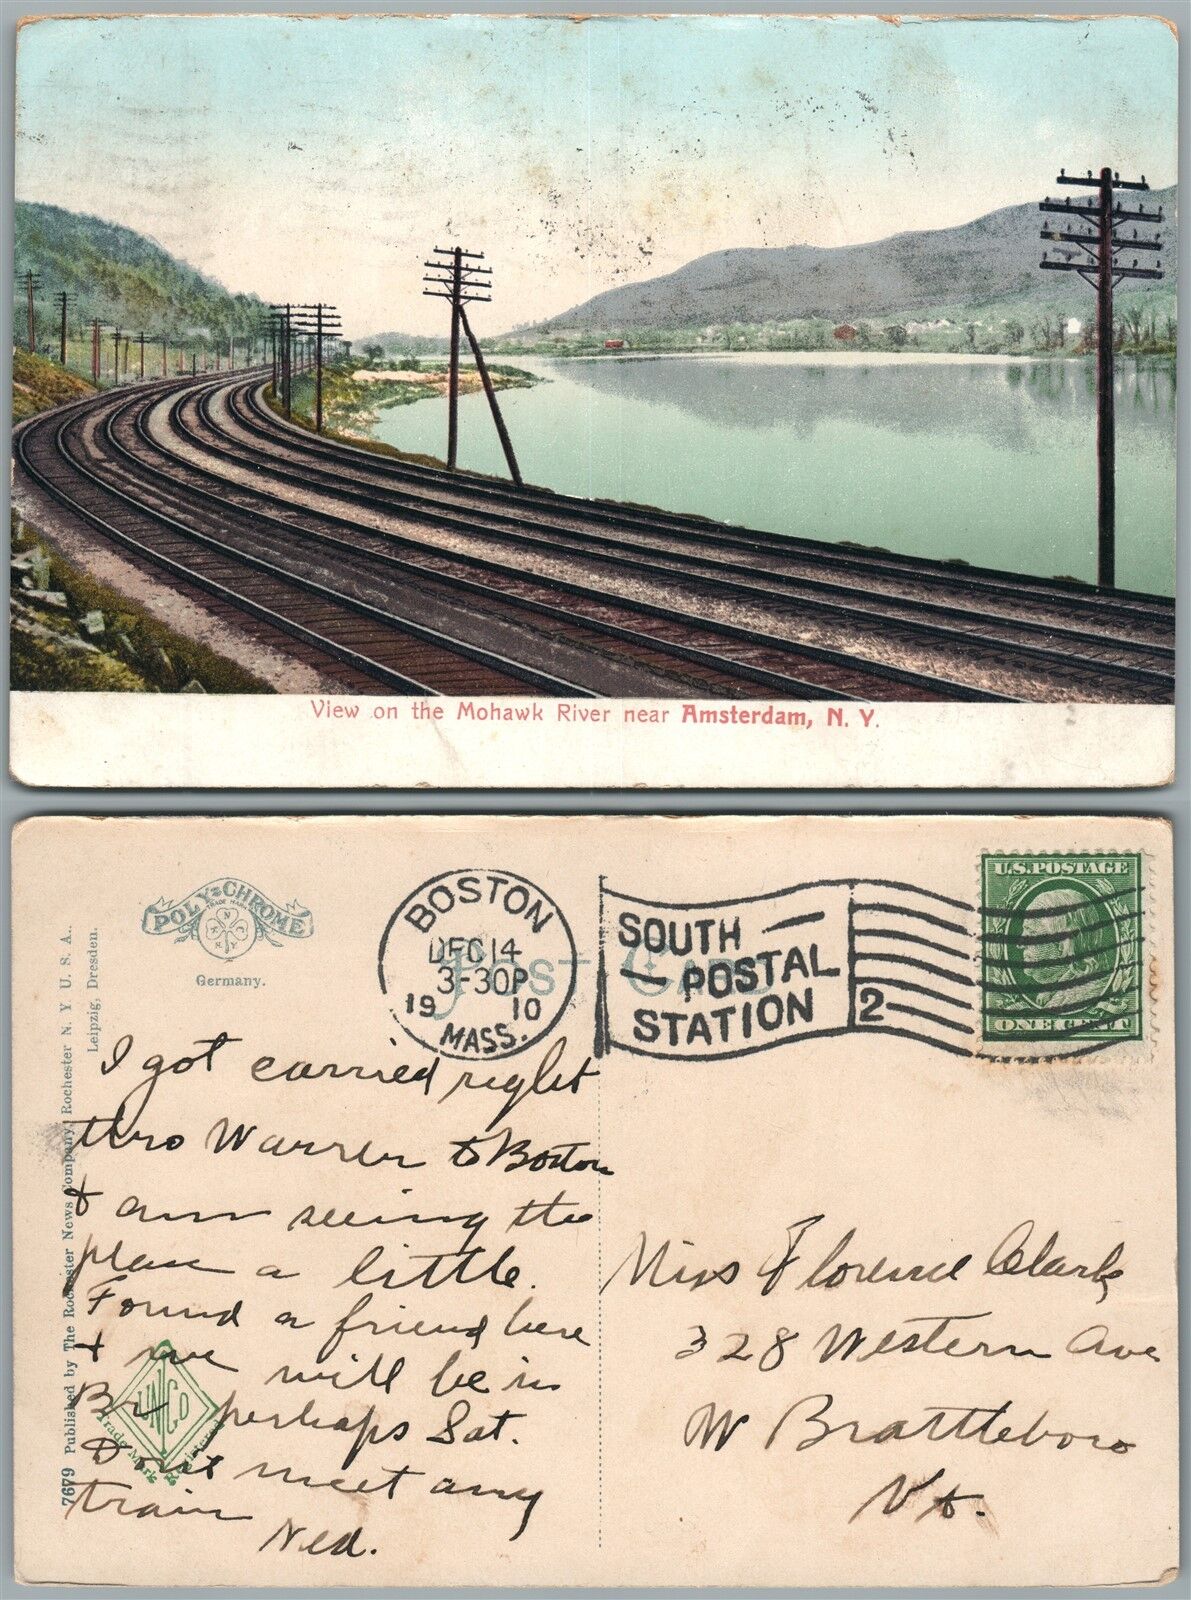 View on the Mohawk River near Amsterdam, N. Y.
POLY-CHROME
TRADE MARK
Germany.
7679 Published by The Rochester News Company, Rochester N. Y. U. S. A.
Leipzig, Dresden.
POST CARD
BOSTON
DEC 14
3-30P
19 10
MASS.
SOUTH
POSTAL
STATION
2
U.S. POSTAGE
ONE CENT
I got carried right
thro Warren to Boston
& am seeing the
place a little.
Found a friend here
+ we will be in
Br perhaps Sat.
Dont meet any
train
Ned.
UNCo
Trade Mark
Miss Florence Clark,
328 Western Ave
W Brattleboro
Vt.